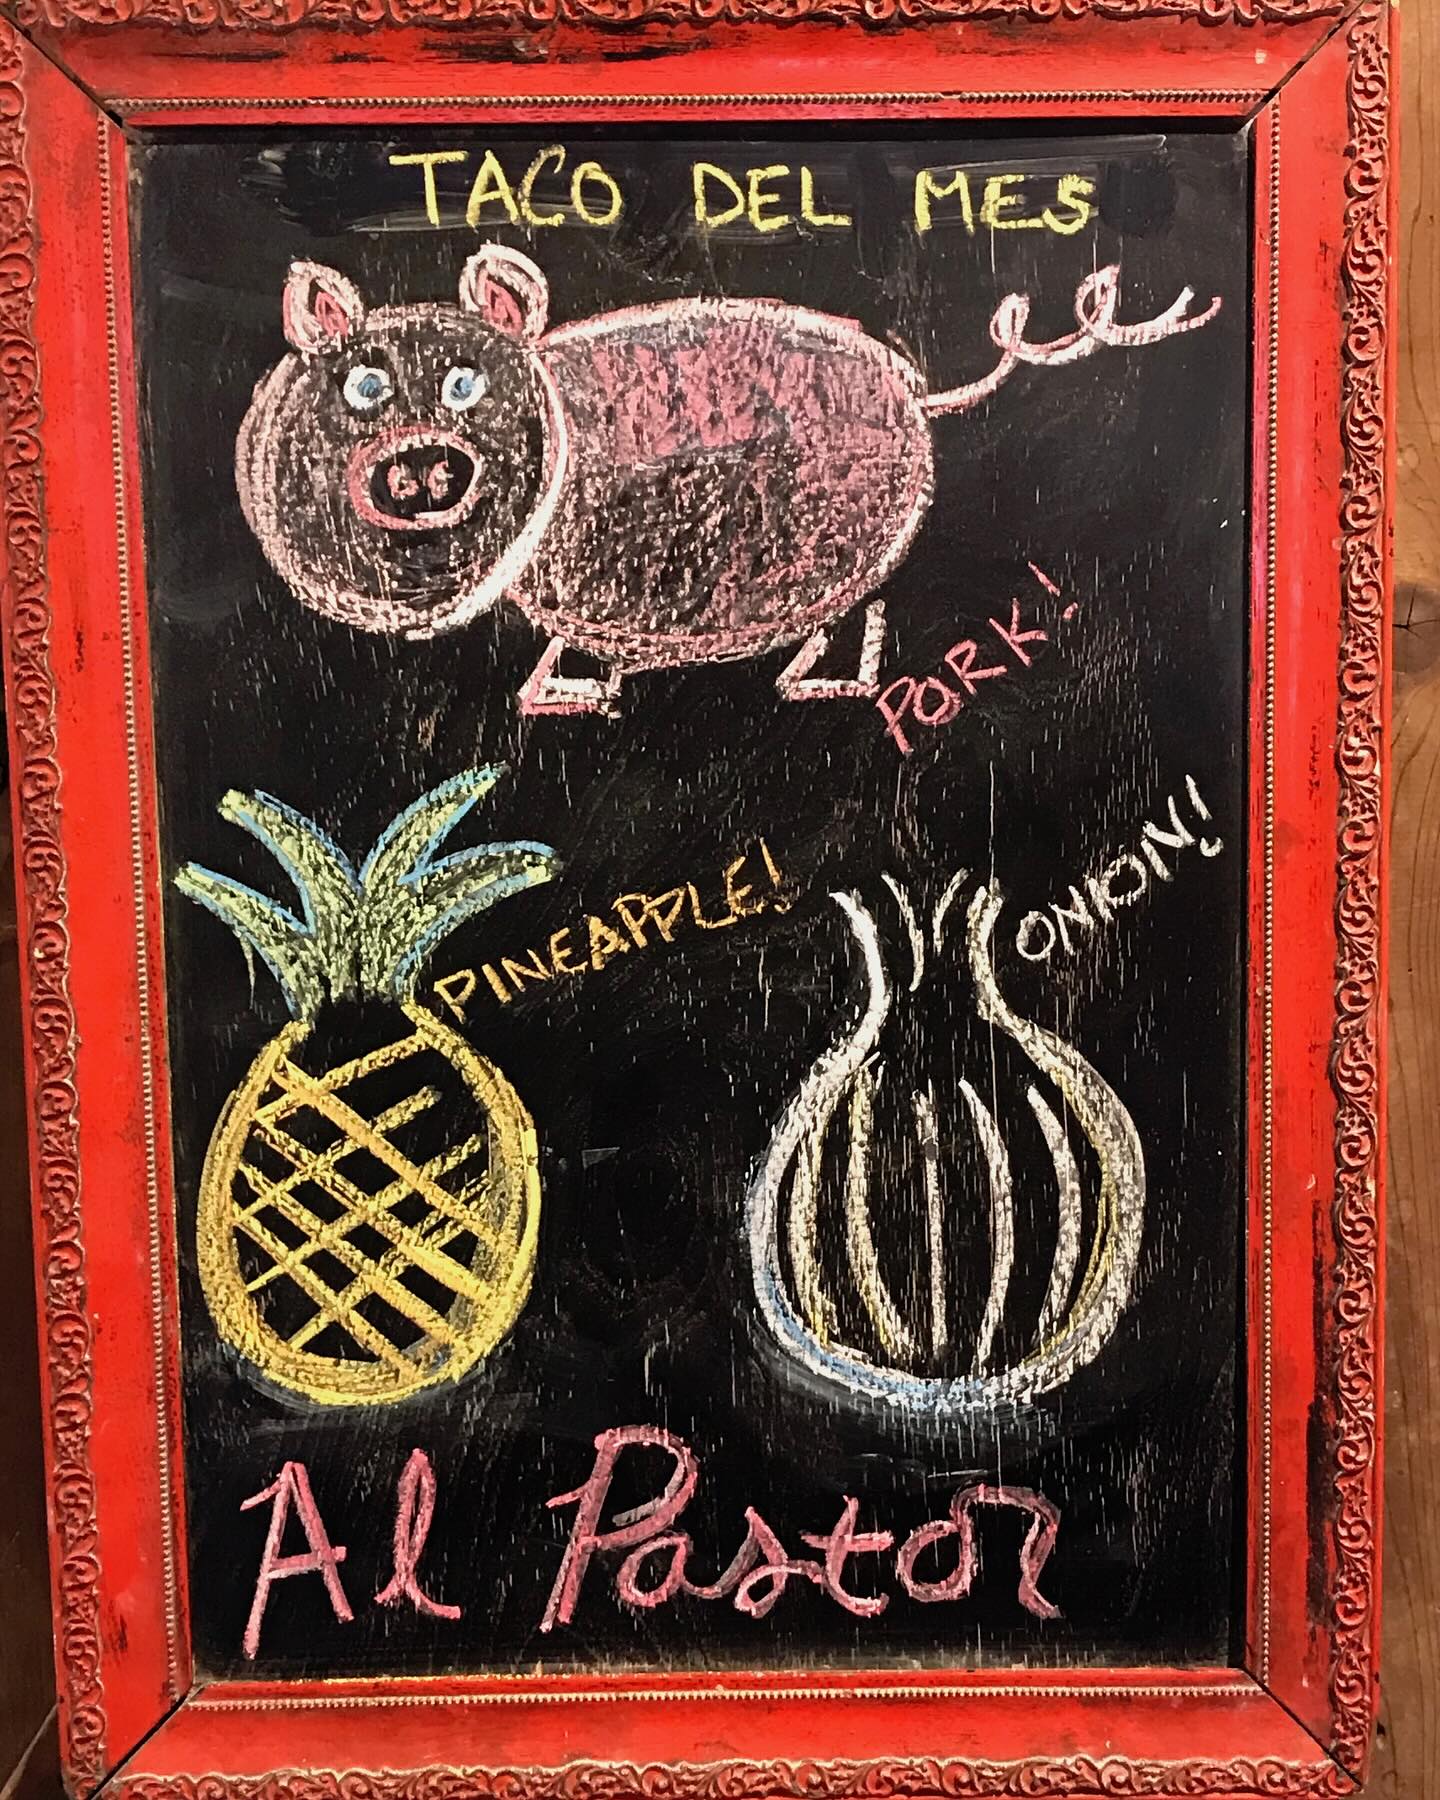 TACO DEL MES
PORK!
PINEAPPLE!
ONION!
Al Pastor